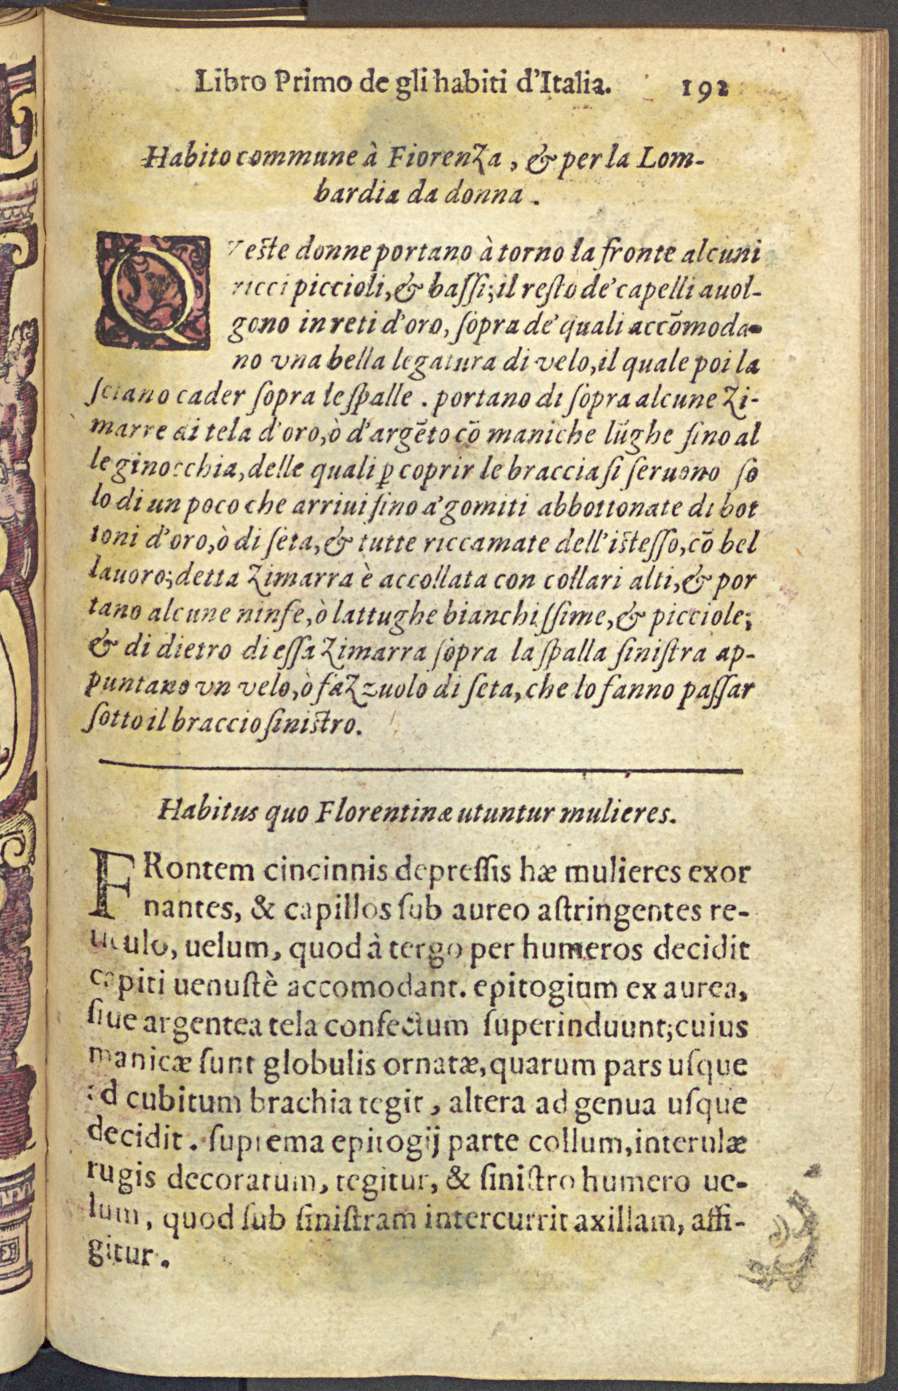 Libro Primo de gli habiti d'Italia. 192
Habito commune à Fiorenza, & per la Lom-
bardia da donna.
QVeste donne portano à torno la fronte alcuni
ricci piccioli, & bassi; il resto de' capelli auol-
gono in reti d'oro, sopra de' quali accõmoda-
no vna bella legatura di velo, il quale poi la
sciano cader sopra le spalle. portano di sopra alcune Zi-
marre di tela d'oro, ò d'argẽto cõ maniche lũghe sino al
le ginocchia, delle quali ꝑ coprir le braccia si seruono so
lo di un poco che arriui sino a' gomiti abbottonate di bot
toni d'oro, ò di seta, & tutte riccamate dell'istesso, cõ bel
lauoro; detta Zimarra è accollata con collari alti, & por
tano alcune ninfe, ò lattughe bianchissime, & picciole;
& di dietro di essa Zimarra sopra la spalla sinistra ap-
puntano vn velo, ò fazzuolo di seta, che lo fanno passar
sotto il braccio sinistro.
Habitus quo Florentinæ utuntur mulieres.
FRontem cincinnis depressis hæ mulieres exor
nantes, & capillos sub aureo astringentes re-
ticulo, uelum, quod à tergo per humeros decidit
capiti uenustè accomodant. epitogium ex aurea,
siue argentea tela confectum superinduunt; cuius
manicæ sunt globulis ornatæ, quarum pars usque
ad cubitum brachia tegit, altera ad genua usque
decidit. suprema epitogij parte collum, interulæ
rugis decoratum, tegitur, & sinistro humero ue-
lum, quod sub sinistram intercurrit axillam, affi-
gitur.